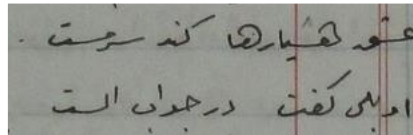 عشق هشیارها کند سرمست
او بلی گفت در جواب الست